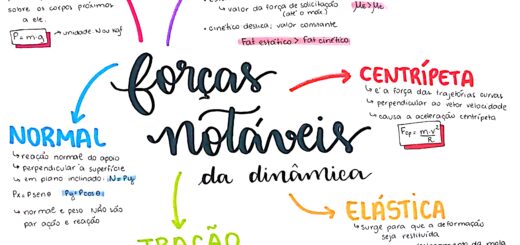 sobre os corpos próximos
a ele.
P=m.g → unidade: N ou Kgf
↳ valor da força de solicitação
(até o máx.)
μe>μc
• cinético desliza; valor constante
Fat estático > Fat cinético
forças
notáveis
da dinâmica
CENTRÍPETA
↳ é a força das trajetórias curvas
↳ perpendicular ao vetor velocidade
↳ causa a aceleração centrípeta
Fcp = m.v²
R
NORMAL
↳ reação normal do apoio
↳ perpendicular à superfície
↳ em plano inclinado: N=Py
Px=Psenθ Py=Pcosθ
↳ normal e peso NÃO são
par ação e reação
ELÁSTICA
↳ surge para que a deformação
seja restituída
TRAÇÃO